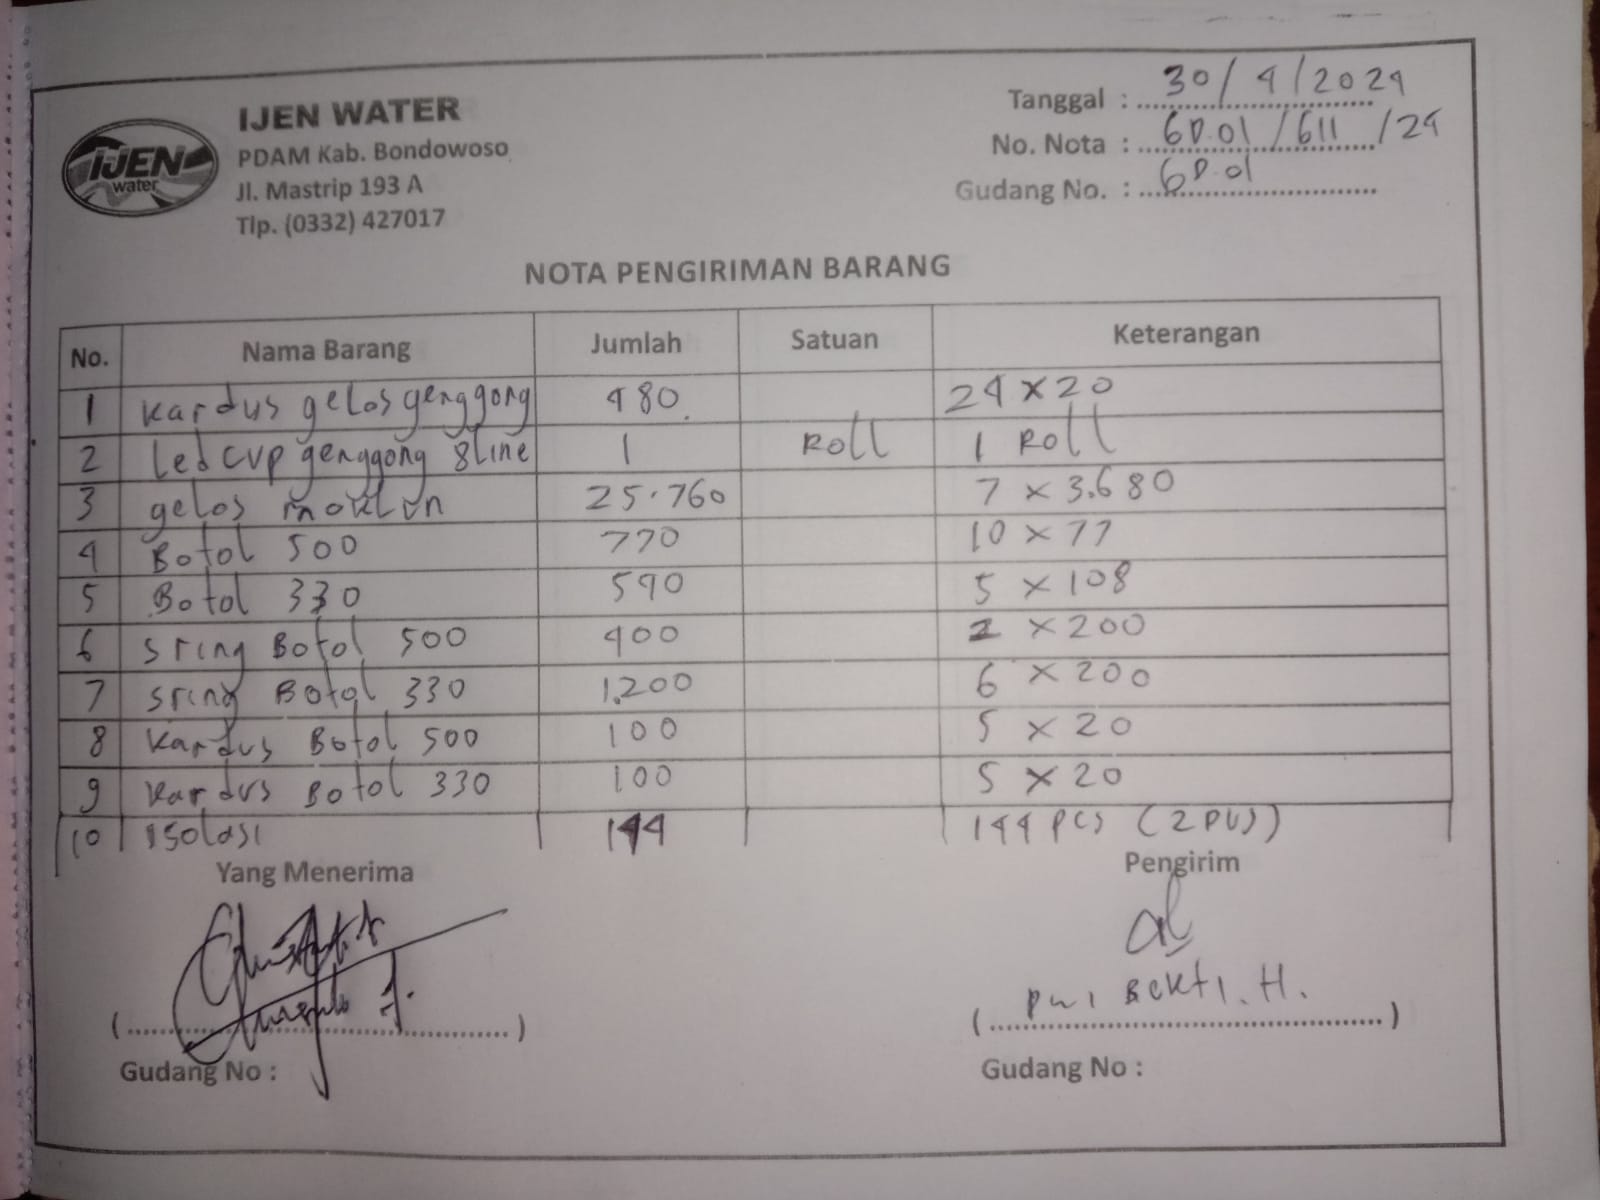 IJEN WATER
PDAM Kab. Bondowoso
Jl. Mastrip 193 A
Tlp. (0332) 427017
IJEN
water
Tanggal : 30/4/2024
No. Nota : GD.01/611/24
Gudang No. : GD.01
NOTA PENGIRIMAN BARANG
No. Nama Barang Jumlah Satuan Keterangan
1 Kardus gelas genggong 480 24 x 20
2 Led cup genggong 8 line 1 Roll 1 Roll
3 gelas maklun 25.760 7 x 3.680
4 Botol 500 770 10 x 77
5 Botol 330 540 5 x 108
6 Sring Botol 500 400 2 x 200
7 Sring Botol 330 1.200 6 x 200
8 Kardus Botol 500 100 5 x 20
9 Kardus Botol 330 100 5 x 20
10 Isolasi 144 144 pcs (2 pus)
Yang Menerima Pengirim
Bekti. H.
Gudang No : Gudang No :